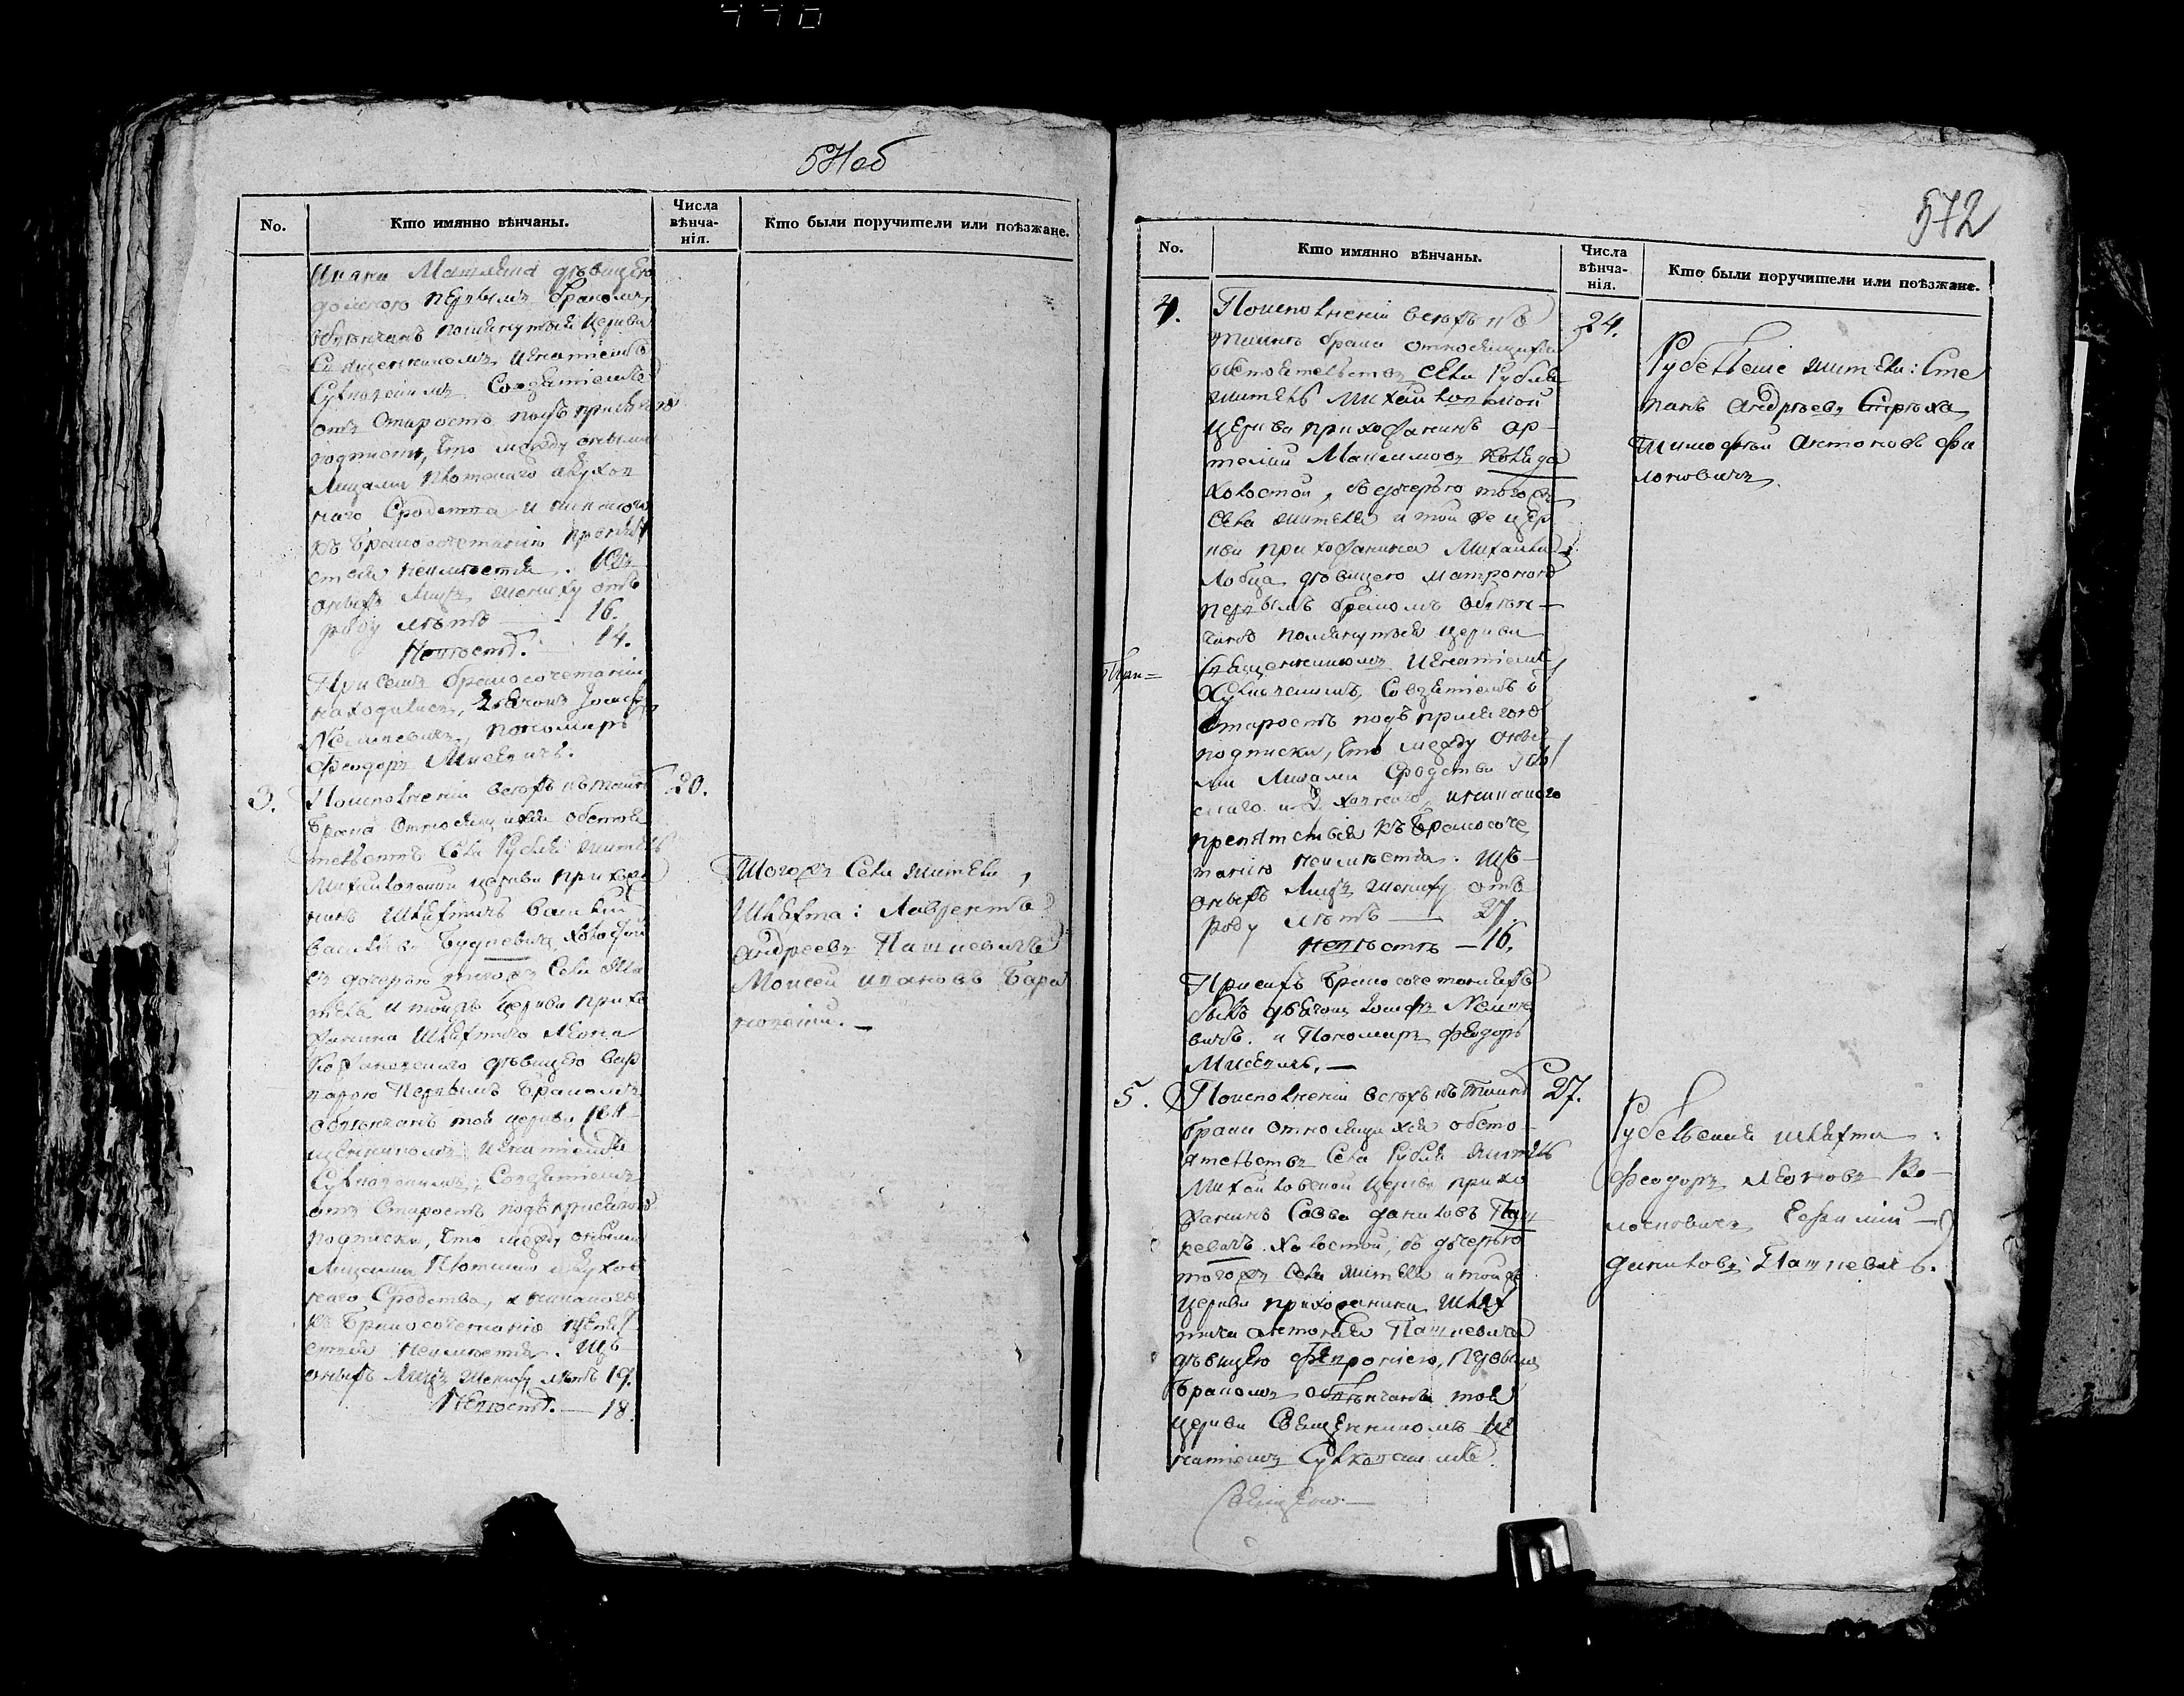 571об
No.
Кто имянно вѣнчаны.
Числа
вѣнча-
нія.
Кто были поручители или поѣзжане.
дѣвицею
первымъ бракомъ
обвѣнчанъ помянутыя церкви
Священникомъ Игнатіемъ
Сулковскимъ Совзятіемъ
отъ Старостъ подъ присягою
подписки, что между оными
Лицами Плотскаго и духов
наго Сродства и никакого
къ бракосочетанію препят
ствія неимѣется. Изъ
оныхъ Лицъ жениху отъ
роду лѣтъ — 16.
Невѣстѣ. 14.
При семъ бракосочетаніи
находились, дьячокъ Іосифъ
пономаръ
Феодоръ Мисевичъ.
3.
Поисполненіи всѣхъ къ таинст
брака относящихся обстоя
тельствъ Села Рубля житель
Михайловской церкви прихожа
нинъ Шляхтичъ Василій
Васильевъ Будкевичъ холостой
съ дочерью тогожъ Села жи
теля и тойжъ Церкви прихо
жанина Шляхтича Леона
дѣвицею Вар
варою Первымъ Бракомъ
обвѣнчанъ той церкви Свя
щенникомъ Игнатіемъ
Сулковскимъ, Совзятіемъ
отъ Старостъ подъ присягою
подписки, что между оными
Лицами Плотскаго и духов
наго Сродства, и никакого
къ Бракосочетанію препят
ствія Неимѣется. Изъ
оныхъ Лицъ Жениху лѣтъ 19.
Невѣстѣ. — 18.
20.
Тогожъ Села жители,
Шляхта: Лаврентій
Андреевъ Пашкевичъ
Моисей Ивановъ Бара
новскій. —
572
No.
Кто имянно вѣнчаны.
Числа
вѣнча-
нія.
Кто были поручители или поѣзжане.
4.
Поисполненіи всѣхъ къ
таинст брака относящихся
обстоятельствъ Села Рубля
житель Михайловской
Церкви прихожанинъ Ар-
темій Максимовъ Коляда
Холостой, съ дочерью тогожъ
Села жителя и той же цер
кви прихожанина Михаила
Лобца дѣвицею Матроною
первымъ бракомъ обвѣн-
чанъ помянутыя церкви
Священникомъ Игнатіемъ
Сулковскимъ, Совзятіемъ отъ
Старостъ подъ присягою
подписки, что между оны
ми Лицами Сродства Плот
скаго и Духовнаго, и никакого
препятствія къ Бракосоче
танію неимѣется. Изъ
оныхъ Лицъ Жениху отъ
роду лѣтъ — 27.
невѣстѣ — 16.
При сихъ Бракосочетаніяхъ
былъ дьячокъ Іосифъ
и Пономаръ Феодоръ
Мисевичъ. —
24.
Рубельскіе жители: Сте
панъ Андреевъ Стрѣха
Тимофей Антоновъ Фи
лоновичъ.
5.
Поисполненіи всѣхъ къ Таинст
брака относящихся обсто-
ятельствъ Села Рубля житель
Михайловской Церкви прихо
жанинъ Савва Даниловъ Паш
кевичъ. Холостой, съ дочерью
тогожъ Села жителя и той же
Церкви прихожанина Шлях
тича Антонія Пашкевича
дѣвицею Феврoніею, Первымъ
Бракомъ обвѣнчанъ тоя
Церкви Священникомъ Иг
натіемъ Сулковскимъ
27.
Рубельская шляхта:
Феодоръ Леоновъ Во-
лосковичъ Ефимій
Даниловъ Пашкевичъ.